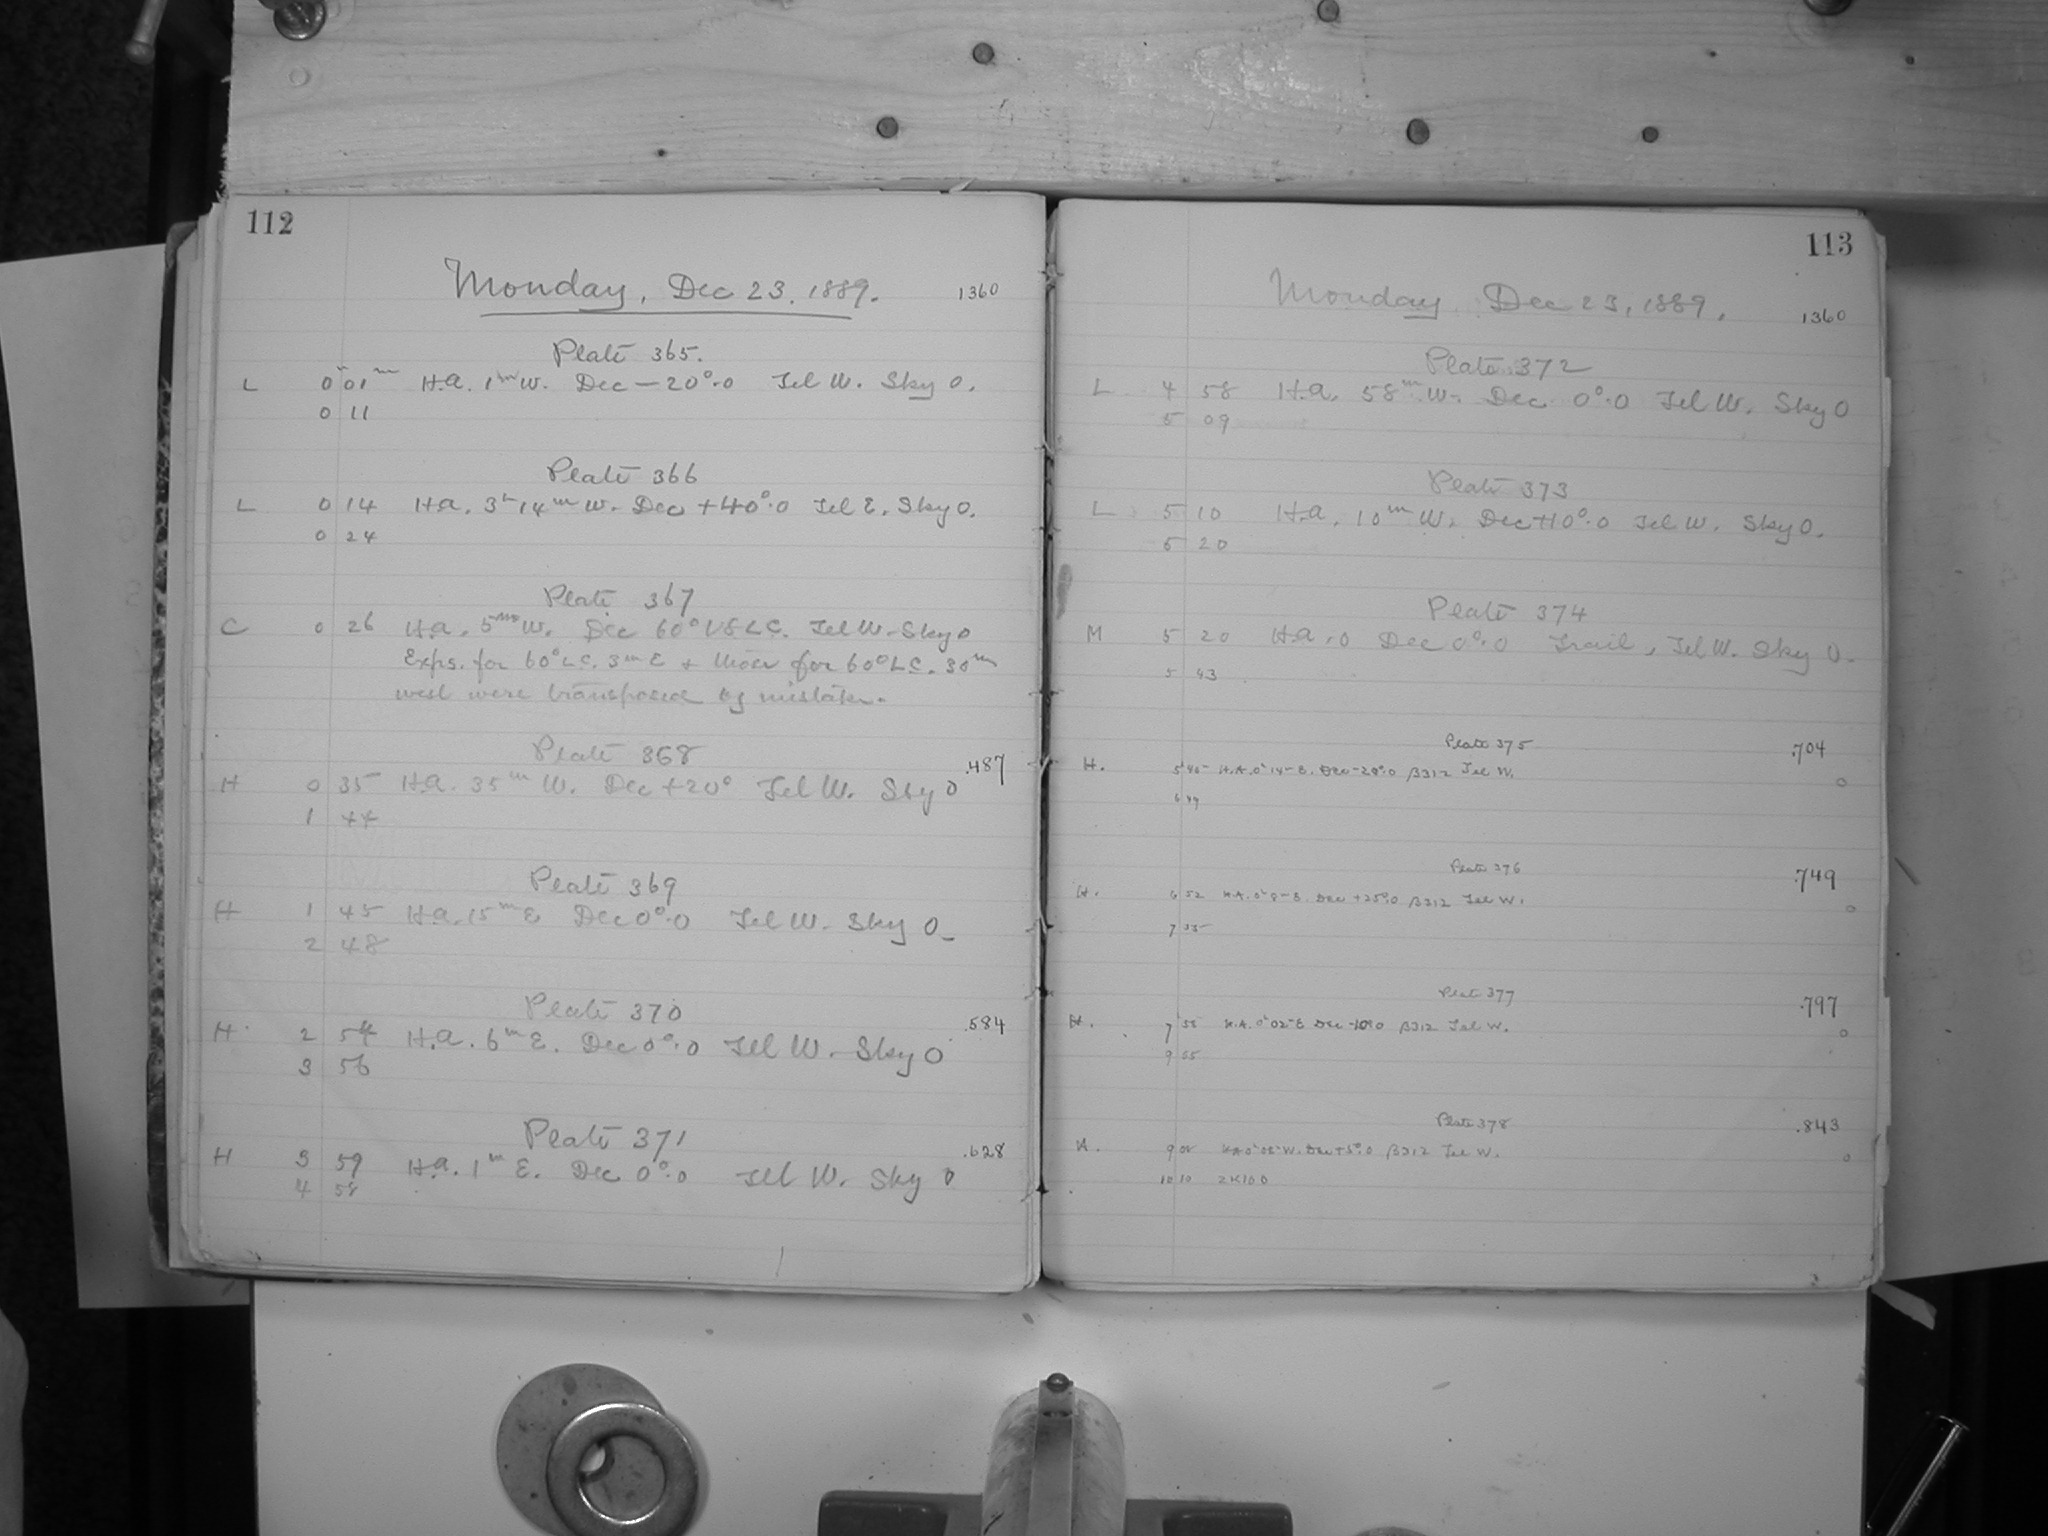 112
Monday, Dec 23, 1889. 1360
Plate 365.
L 0 01 m H.a. 1m W. Dec -20°.0 Tel W. Sky 0.
0 11
Plate 366
L 0 14 H.a. 3h 14m W. Dec +40°.0 Tel E. Sky 0.
0 24
Plate 367
C 0 26 H.a. 5m W. Dec 60° L.C. Tel W. Sky 0
Exps. for 60° L.C. 3m E & those for 60° L.C. 30m
west were transposed by mistake.
Plate 368 .487
H 0 35 H.a. 35m W. Dec +20° Tel W. Sky 0
1 44
Plate 369
H 1 45 H.a. 15m E Dec 0°.0 Tel W. Sky 0
2 48
Plate 370 .584
H 2 54 H.a. 6m E. Dec 0°.0 Tel W. Sky 0
3 56
Plate 371 .628
H 3 59 H.a. 1m E. Dec 0°.0 Tel W. Sky 0
4 58
113
Monday, Dec 23, 1889. 1360
Plate 372
L 4 58 H.a. 58m W. Dec 0°.0 Tel W. Sky 0
5 09
Plate 373
L 5 10 H.a. 10m W. Dec +10°.0 Tel W. Sky 0.
5 20
Plate 374
M 5 20 H.a. 0 Dec 0°.0 Trail, Tel W. Sky 0.
5 43
Plate 375 .704
H. 5 45 H.A. 0h 14m E. Dec -20°.0 B312 Tel W. 0
6 49
Plate 376 .749
H. 6 52 H.A. 0h 8m E. Dec +25°.0 B312 Tel W. 0
7 55
Plate 377 .797
H. 7 58 H.A. 0h 02m E Dec -10°.0 B312 Tel W. 0
9 05
Plate 378 .843
H. 9 08 H.A. 0h 08m W. Dec +5°.0 B312 Tel W. 0
10 10